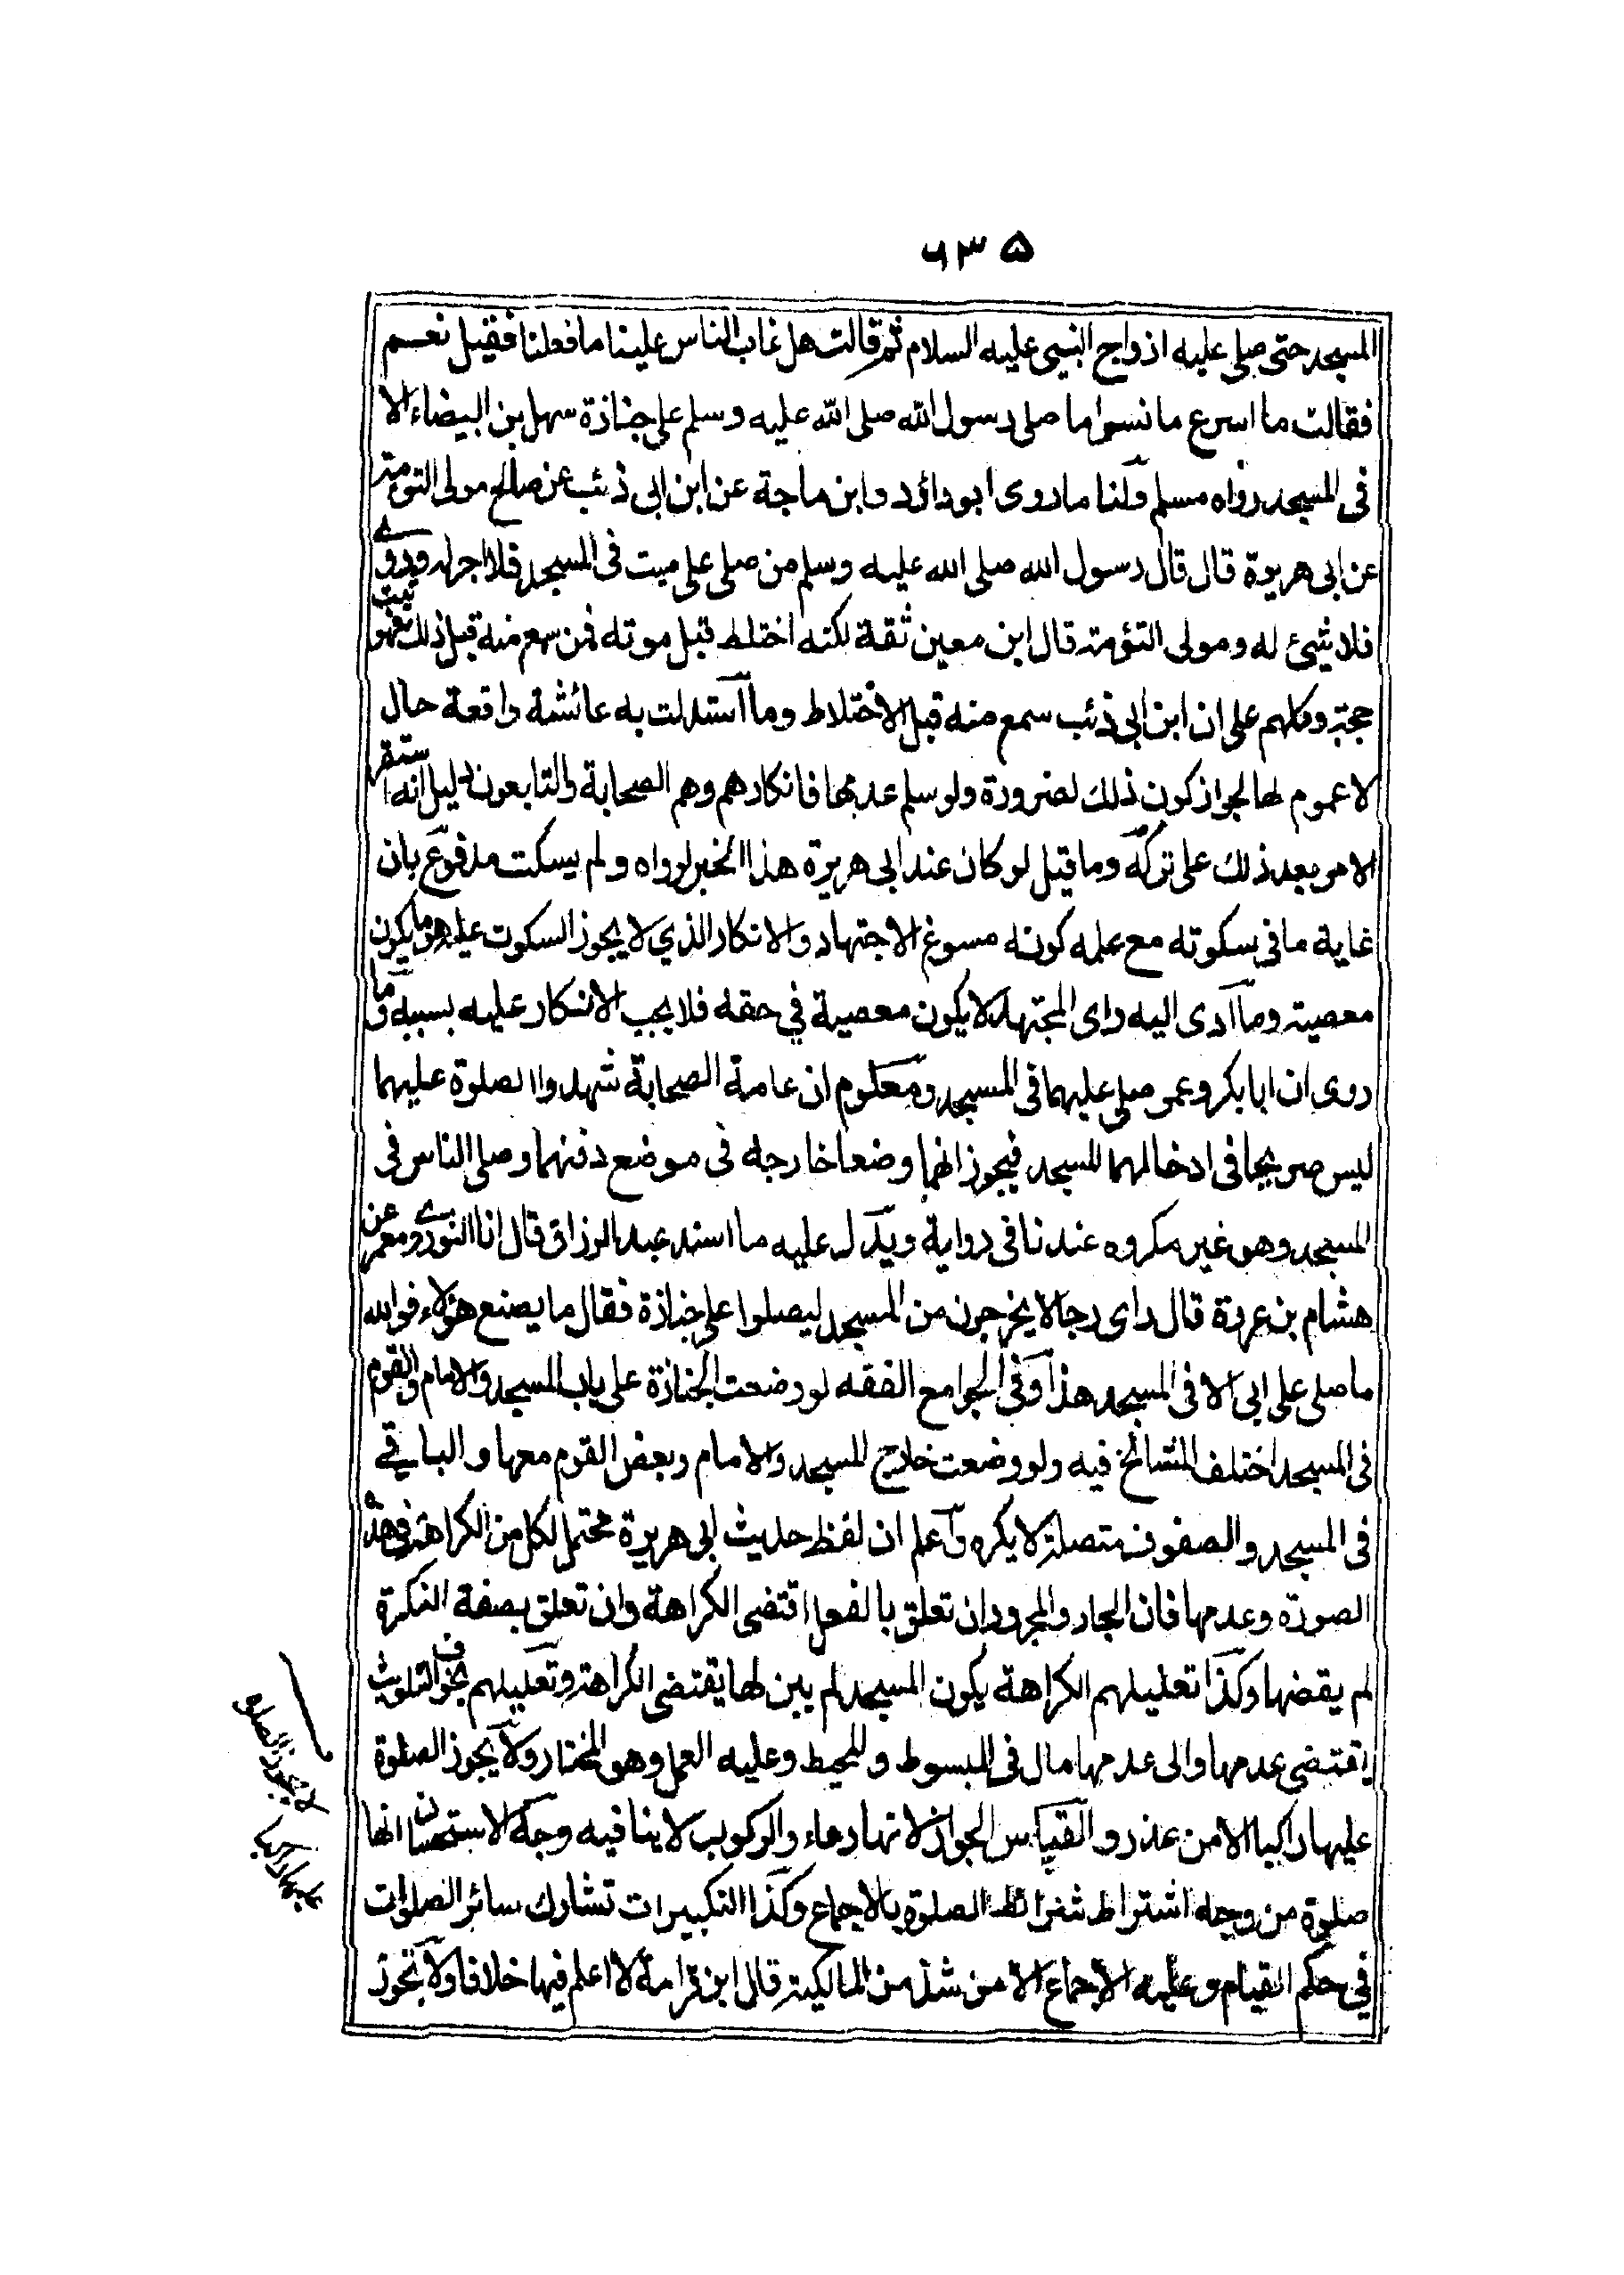 ٦٣٥
المسجد حتى صلى عليه ازواج النبى عليه السلام ثم قالت هل غاب الناس علينا ما فعلنا فقيل نعم
فقالت ما اسرع ما نسوا ما صلى رسول الله صلى الله عليه وسلم على جنازة سهل بن البيضاء الا
فى المسجد رواه مسلم ولنا ما روى ابو دائود وابن ماجة عن ابن ابى ذئب عن صالح مولى التؤمة
عن ابى هريرة قال قال رسول الله صلى الله عليه وسلم من صلى على ميت فى المسجد فلا اجر له وروى
فلا شئ له ومولى التؤمة قال ابن معين ثقة لكنه اختلط قبل موته فمن سمع منه قبل ذلك فهو ثبت
حجة وكلهم على ان ابن ابى ذئب سمع منه قبل الاختلاط وما استدلت به عائشة واقعة حال
لا عموم لها لجواز كون ذلك لضرورة ولو سلم عدمها فانكارهم وهم الصحابة والتابعون دليل انه استقر
الامر بعد ذلك على تركه وما قيل لو كان عند ابى هريرة هذا الخبر لرواه ولم يسكت مدفوع بان
غاية ما فى سكوته مع علمه كونه مسوغ الاجتهاد والانكار الذي لا يجوز السكوت عليه هو ما يكون
معصية وما آدى اليه راى المجتهد لا يكون معصية في حقه فلا يجب الانكار عليه بسببه وما
روى ان ابا بكر وعمر صلى عليهما فى المسجد ومعلوم ان عامة الصحابة شهدوا الصلوة عليهما
ليس صريحا فى ادخالهما المسجد فيجوز انهما وضعا خارجه فى موضع دفنهما وصلى الناس فى
المسجد وهو غير مكروه عندنا فى رواية ويدل عليه ما اسند عبد الرزاق قال انا الثورى ومعمر عن
هشام بن عروة قال راى رجالا يخرجون من المسجد ليصلوا على جنازة فقال ما يصنع هؤلاء فو الله
ما صلى على ابى الا فى المسجد هذا وفى الجوامع الفقه لو وضعت الجنازة على باب المسجد والامام والقوم
فى المسجد اختلف المشائخ فيه ولو وضعت خارج المسجد والامام وبعض القوم معها والباقي
فى المسجد والصفوف متصلة لا يكره واعلم ان لفظ حديث ابى هريرة محتمل لكل من الكراهة فى هذه
الصورة وعدمها فان الجار والمجرور ان تعلق بالفعل اقتضى الكراهة وان تعلق بصفة النكرة
لم يقضها وكذا تعليلهم الكراهة بكون المسجد لم يبن لها يقتضى الكراهة وتعليلهم بخوف التلويث
يقتضى عدمها والى عدمها مال فى المبسوط والمحيط وعليه العمل وهو المختار ولا يجوز الصلوة
عليها راكبا الا من عذر والقياس الجواز لانها دعاء والركوب لا ينافيه وجه الاستحسان انها
صلوة من وجه اشتراط شرائط الصلوة بالاجماع وكذا التكبيرات تشارك سائر الصلوات
في حكم القيام وعليه الاجماع الا من شذ من المالكية قال ابن قرامة لا اعلم فيها خلافا ولا تجوز
لا يجوز الصلوة
عليها راكبا